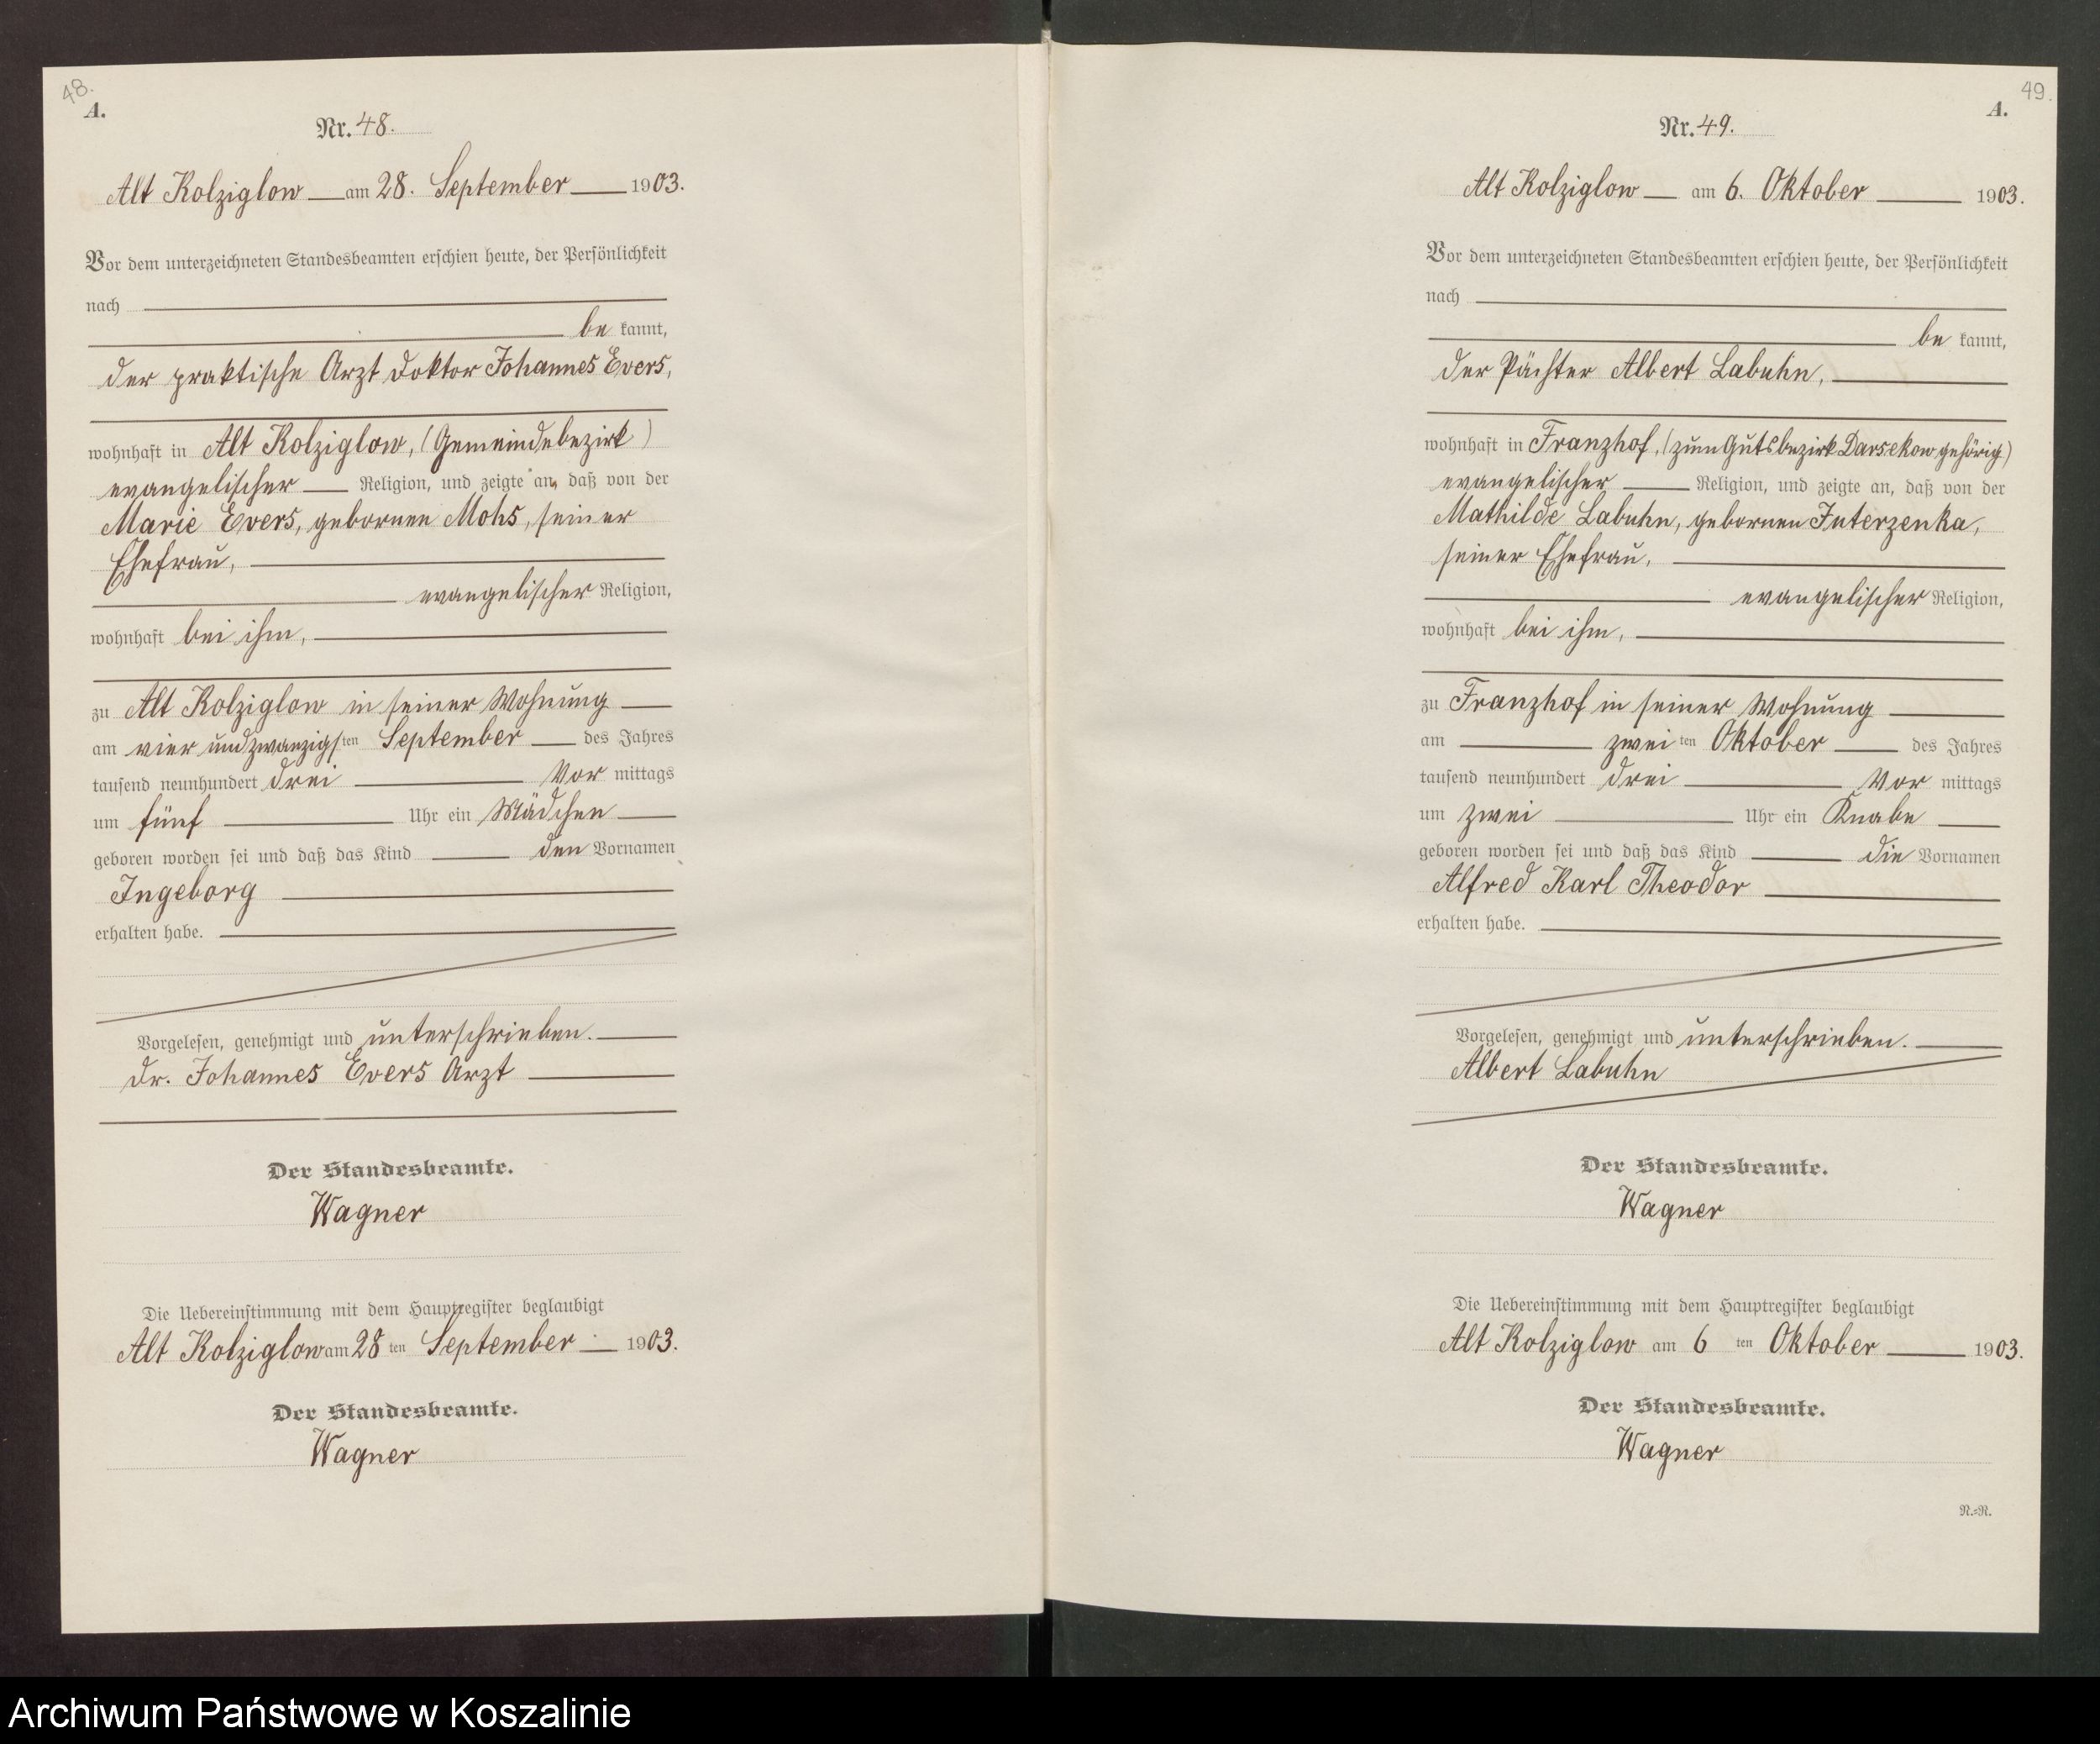 48.
A.
Nr. 48.
Alt Kolziglow am 28. September 1903.
Vor dem unterzeichneten Standesbeamten erschien heute, der Persönlichkeit
nach
be kannt,
der praktische Arzt Doktor Johannes Evers,
wohnhaft in Alt Kolziglow, (Gemeindebezirk)
evangelischer Religion, und zeigte an, daß von der
Marie Evers, gebornen Mohs, seiner
Ehefrau,
evangelischer Religion,
wohnhaft bei ihm,
zu Alt Kolziglow in seiner Wohnung
am vier und zwanzigsten September des Jahres
tausend neunhundert drei Vor mittags
um fünf Uhr ein Mädchen
geboren worden sei und daß das Kind den Vornamen
Ingeborg
erhalten habe.
Vorgelesen, genehmigt und unterschrieben.
Dr. Johannes Evers Arzt
Der Standesbeamte.
Wagner
Die Uebereinstimmung mit dem Hauptregister beglaubigt
Alt Kolziglow am 28 ten September 1903.
Der Standesbeamte.
Wagner
49.
A.
Nr. 49.
Alt Kolziglow am 6. Oktober 1903.
Vor dem unterzeichneten Standesbeamten erschien heute, der Persönlichkeit
nach
be kannt,
der Pächter Albert Labuhn,
wohnhaft in Franzhof, (zum Gutsbezirk Darsekow gehörig)
evangelischer Religion, und zeigte an, daß von der
Mathilde Labuhn, gebornen Juterzenka,
seiner Ehefrau,
evangelischer Religion,
wohnhaft bei ihm,
zu Franzhof in seiner Wohnung
am zwei ten Oktober des Jahres
tausend neunhundert drei Vor mittags
um zwei Uhr ein Knabe
geboren worden sei und daß das Kind die Vornamen
Alfred Karl Theodor
erhalten habe.
Vorgelesen, genehmigt und unterschrieben.
Albert Labuhn
Der Standesbeamte.
Wagner
Die Uebereinstimmung mit dem Hauptregister beglaubigt
Alt Kolziglow am 6 ten Oktober 1903.
Der Standesbeamte.
Wagner
N.=N.
Archiwum Państwowe w Koszalinie